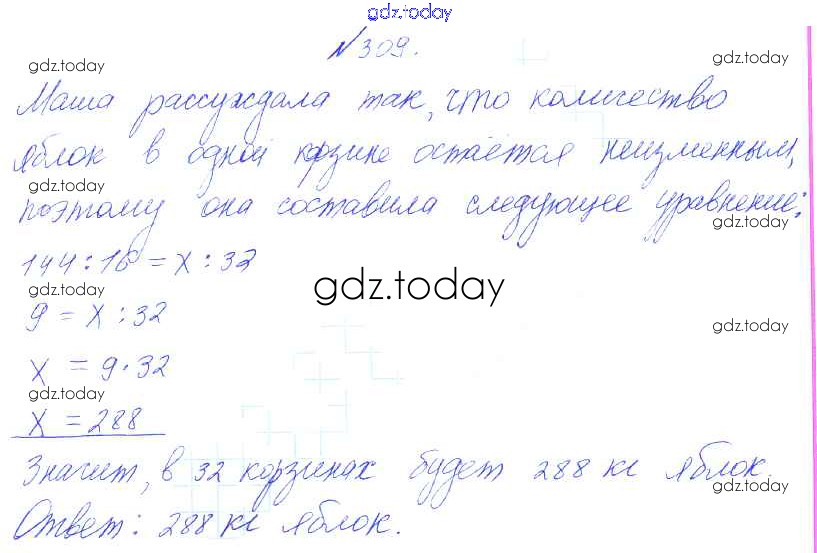 gdz.today
№309.
gdz.today
gdz.today
Маша рассуждала так, что количество
яблок в одной корзине остаётся неизменным,
gdz.today
gdz.today
поэтому она составила следующее уравнение:
144:16=x:32
gdz.today
gdz.today
9=x:32
gdz.today
x=9·32
gdz.today
x=288
Значит, в 32 корзинах будет 288 кг яблок.
gdz.today
gdz.today
Ответ: 288 кг яблок.